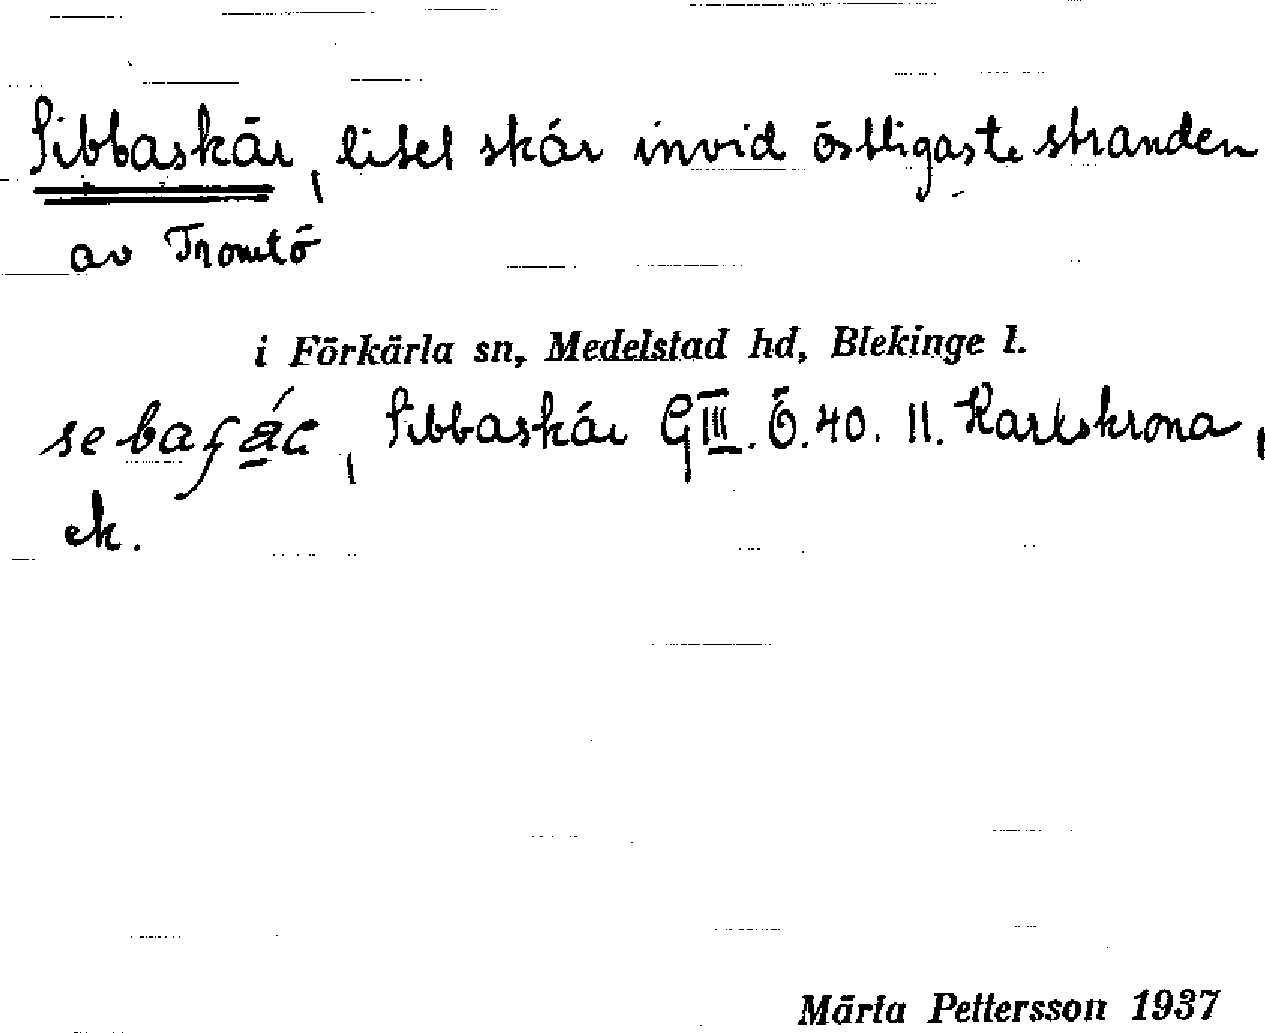 Sibbaskär, litet skär invid östligaste stranden
av Tromtö
i Förkärla sn, Medelstad hd, Blekinge l.
Sibbaskär G III. Ö. 40. 11. Karlskrona,
ek.
Märta Pettersson 1937